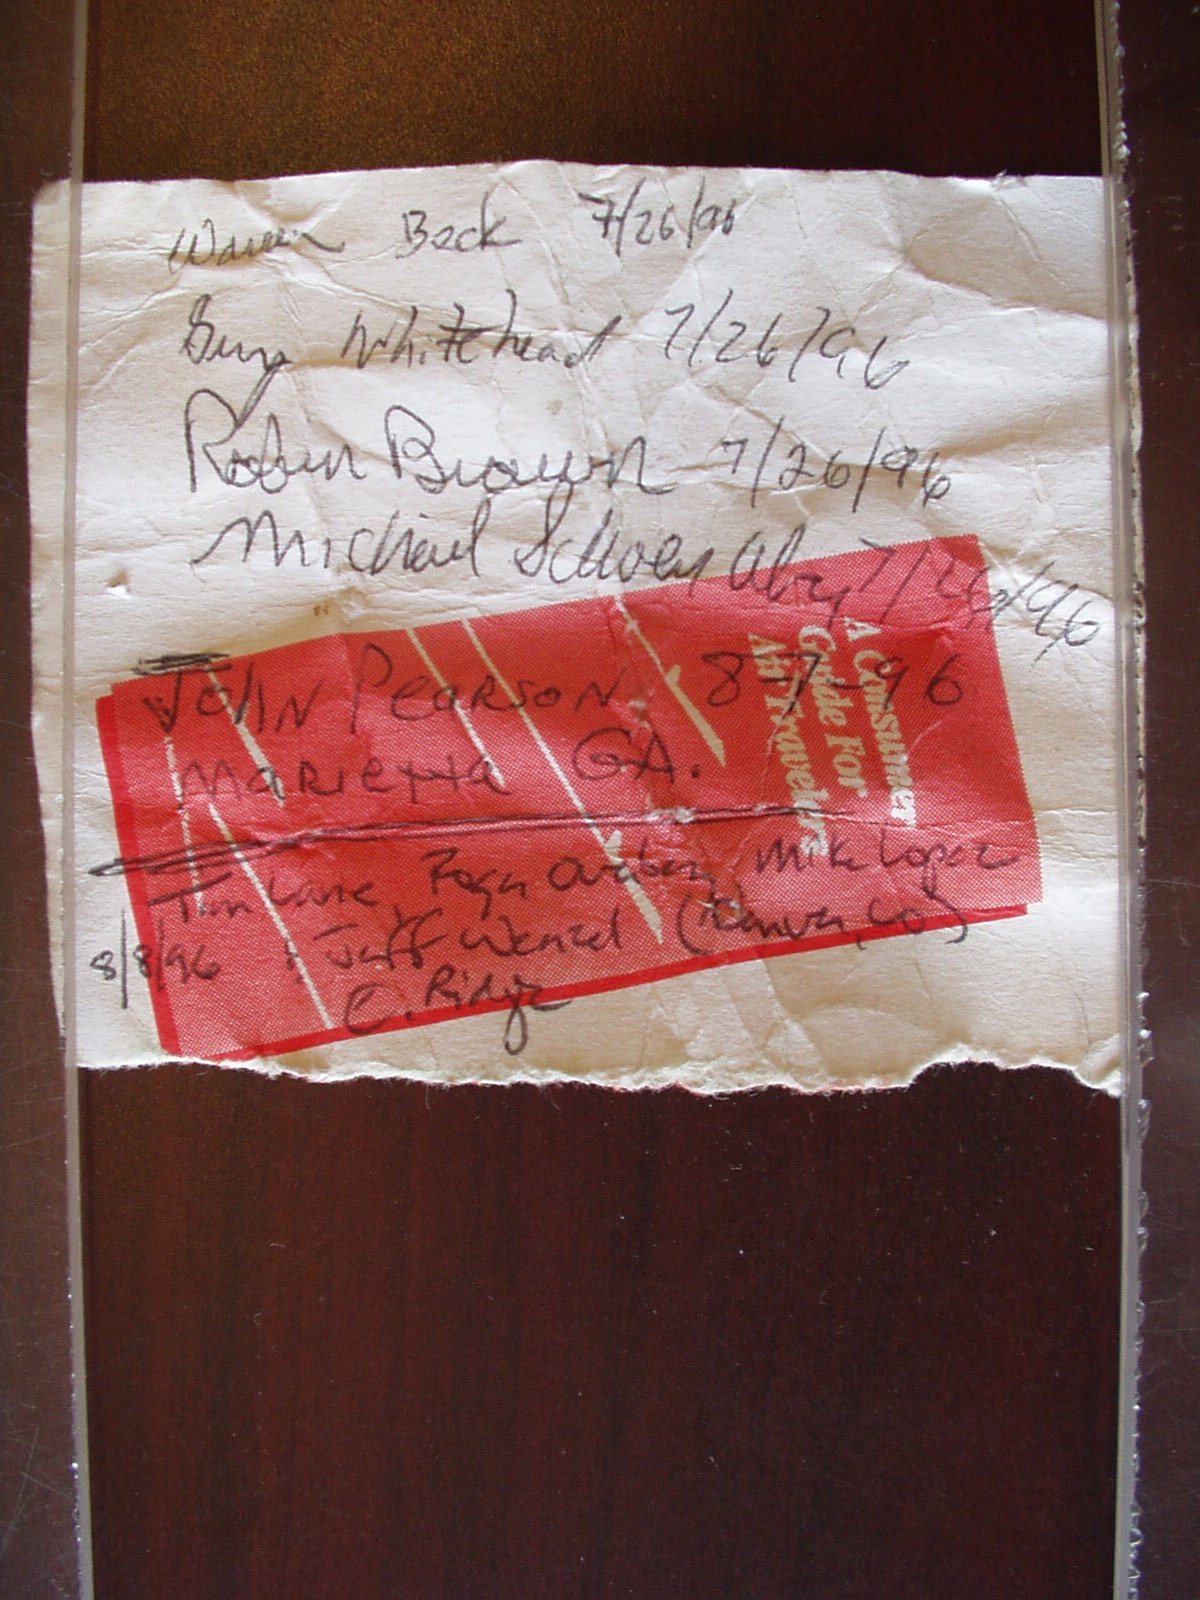 Warren Beck 7/26/96
Whitehead 7/26/96
Robin Brown 7/26/96
Michael 7/26/96
John Pearson 8-7-96
Marietta GA.
Lane Mike Lopez
8/8/96 : Jeff Wenzel (Denver, CO)
C. Ridge
A Consumer
Guide For
Air Travelers